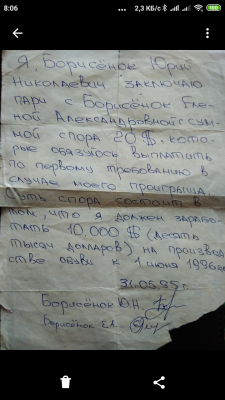 8:06
2,3 КБ/с
Я, Борисёнок Юрий
Николаевич заключаю
пари с Борисёнок Еле-
ной Александровной с сум-
мой спора 20 $, кото-
рые обязуюсь выплатить
по первому требованию в
случае моего проигрыша.
Суть спора состоит в
том, что я должен зарабо-
тать 10,000 $ (десять
тысяч долларов) на производ-
стве обуви к 1 июня 1996
31.05.95 г.
Борисёнок Ю.Н.
Борисёнок Е.А.